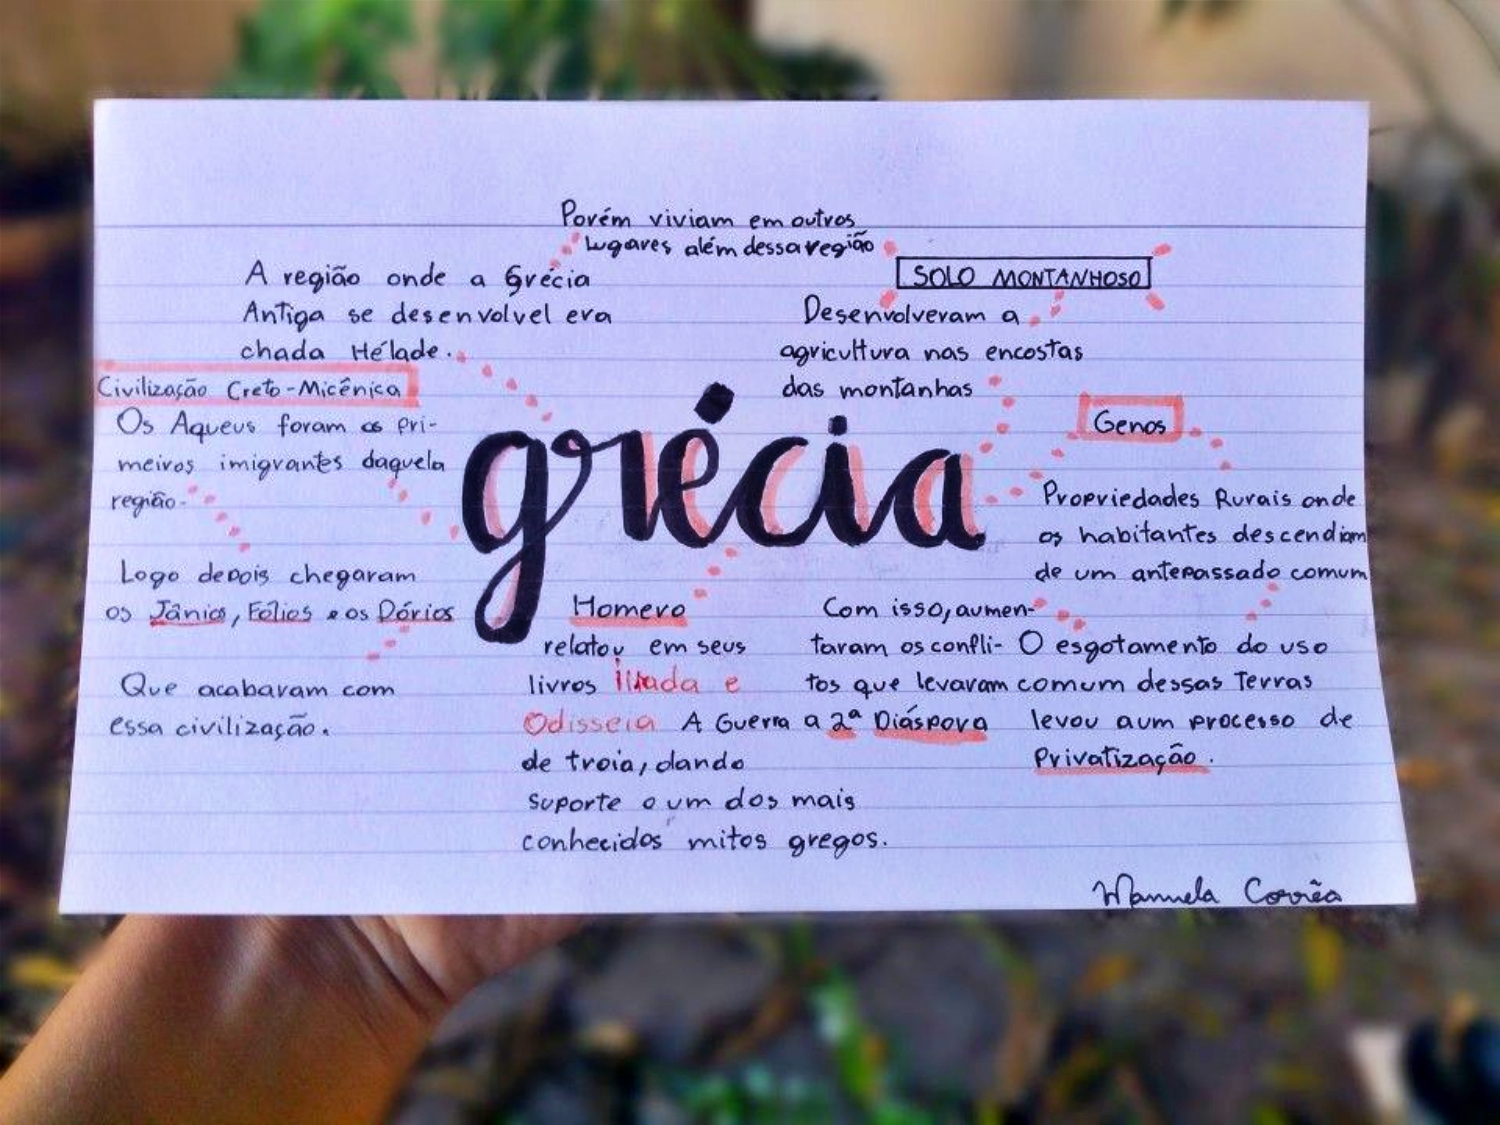 Porém viviam em outros
lugares além dessa região
A região onde a Grécia
Antiga se desenvolvel era
chada Hélade.
SOLO MONTANHOSO
Desenvolveram a
agricultura nas encostas
das montanhas
Civilização Creto-Micênica
Os Aqueus foram os pri-
meiros imigrantes daquela
região.
Logo depois chegaram
os Jânios, Fólios e os Dórios
Que acabaram com
essa civilização.
grécia
Genos
Propriedades Rurais onde
os habitantes descendiam
de um antepassado comum
O esgotamento do uso
comum dessas Terras
levou aum processo de
Privatização.
Com isso, aumen-
taram os confli-
tos que levaram
a 2ª Diáspora
Homero
relatou em seus
livros Ilíada e
Odisseia A Guerra
de troia, dando
suporte a um dos mais
conhecidos mitos gregos.
Manuela Corrêa